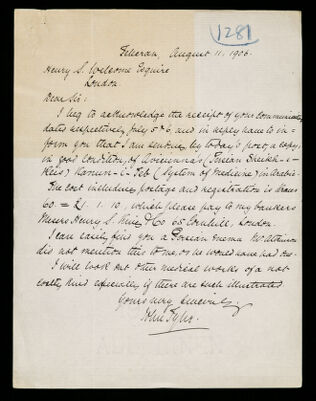 1281
Teheran, August 11. 1906.
Henry S. Wellcome Esquire
London.
Dear Sir:
I beg to acknowledge the receipt of your communications
dated respectively July 5th & and in reply have to in=
form you that I am sending by today's post a copy,
in good condition, of Avicenna's (Persian Sheikh-i-
Reis) Kanun-i-Teb (System of Medicine) in Arabic.
The cost including postage and registration is
60 = £1. 1. 10, which please pay to my bankers
Messrs Henry S. King & Co 65 Cornhill, London.
I can easily find you a Persian enema Mr
did not mention this to me, or we would have had one.
I will look out other medical works of a not
costly kind especially if there are such illustrated
Yours very sincerely,
John Tyler.